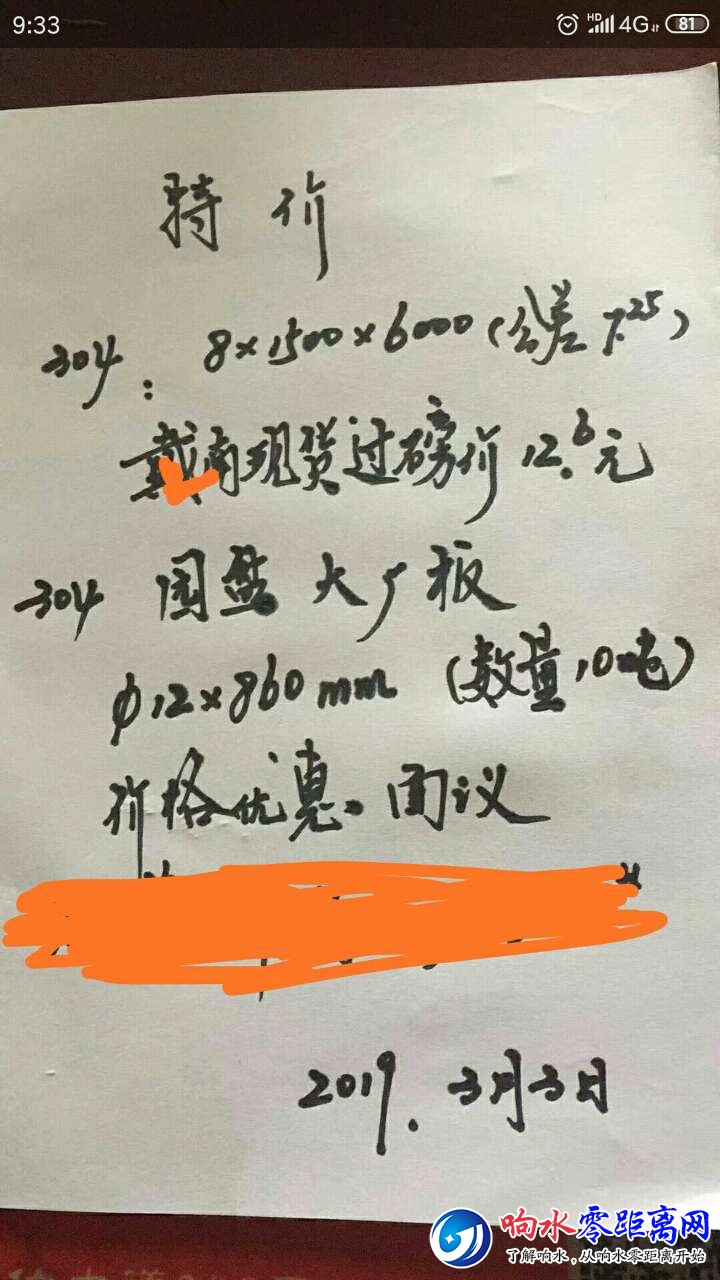 9:33
HD 4G 81
特价
304: 8×1500×6000(公差7.25)
戴南现货过磅价12.6元
304 圆盘大厂板
φ12×860mm (数量10吨)
价格优惠、面议
2019.3月3日
响水零距离网
了解响水,从响水零距离开始